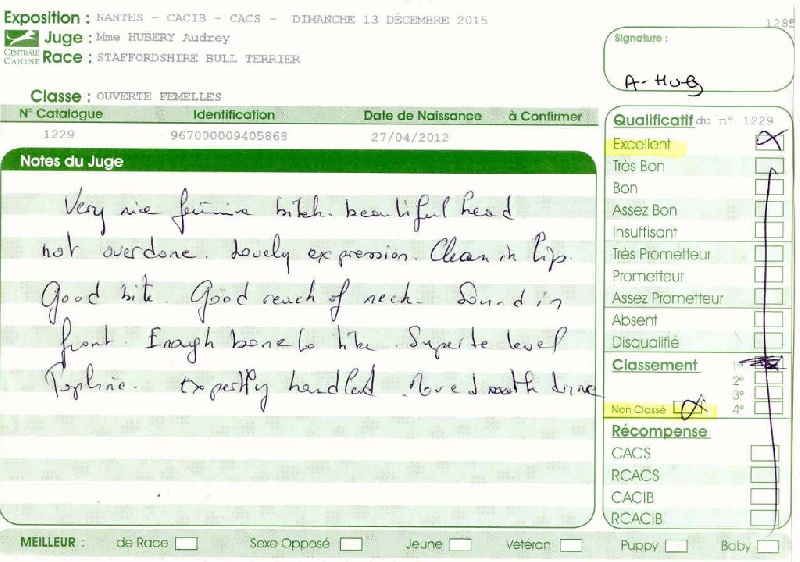 Exposition : NANTES - CACIB - CACS - DIMANCHE 13 DÉCEMBRE 2015
1285
Juge : Mme HUBERY Audrey
CENTRALE CANINE
Race : STAFFORDSHIRE BULL TERRIER
Signature :
A. Hub
Classe : OUVERTE FEMELLES
N° Catalogue Identification Date de Naissance à Confirmer
1229 967000009405868 27/04/2012
Notes du Juge
Very nice feminine bitch. beautiful head
not overdone. Lovely expression. Clean in lip.
Good bite. Good reach of neck. Sound in
front. Enough bone to like. Superbe level
Topline. expertly handled. Moved with drive
Qualificatif du n° 1229
Excellent
Très Bon
Bon
Assez Bon
Insuffisant
Très Prometteur
Prometteur
Assez Prometteur
Absent
Disqualifié
Classement 1°
2°
3°
Non Classé 4°
Récompense
CACS
RCACS
CACIB
RCACIB
MEILLEUR : de Race Sexe Opposé Jeune Vétéran Puppy Baby